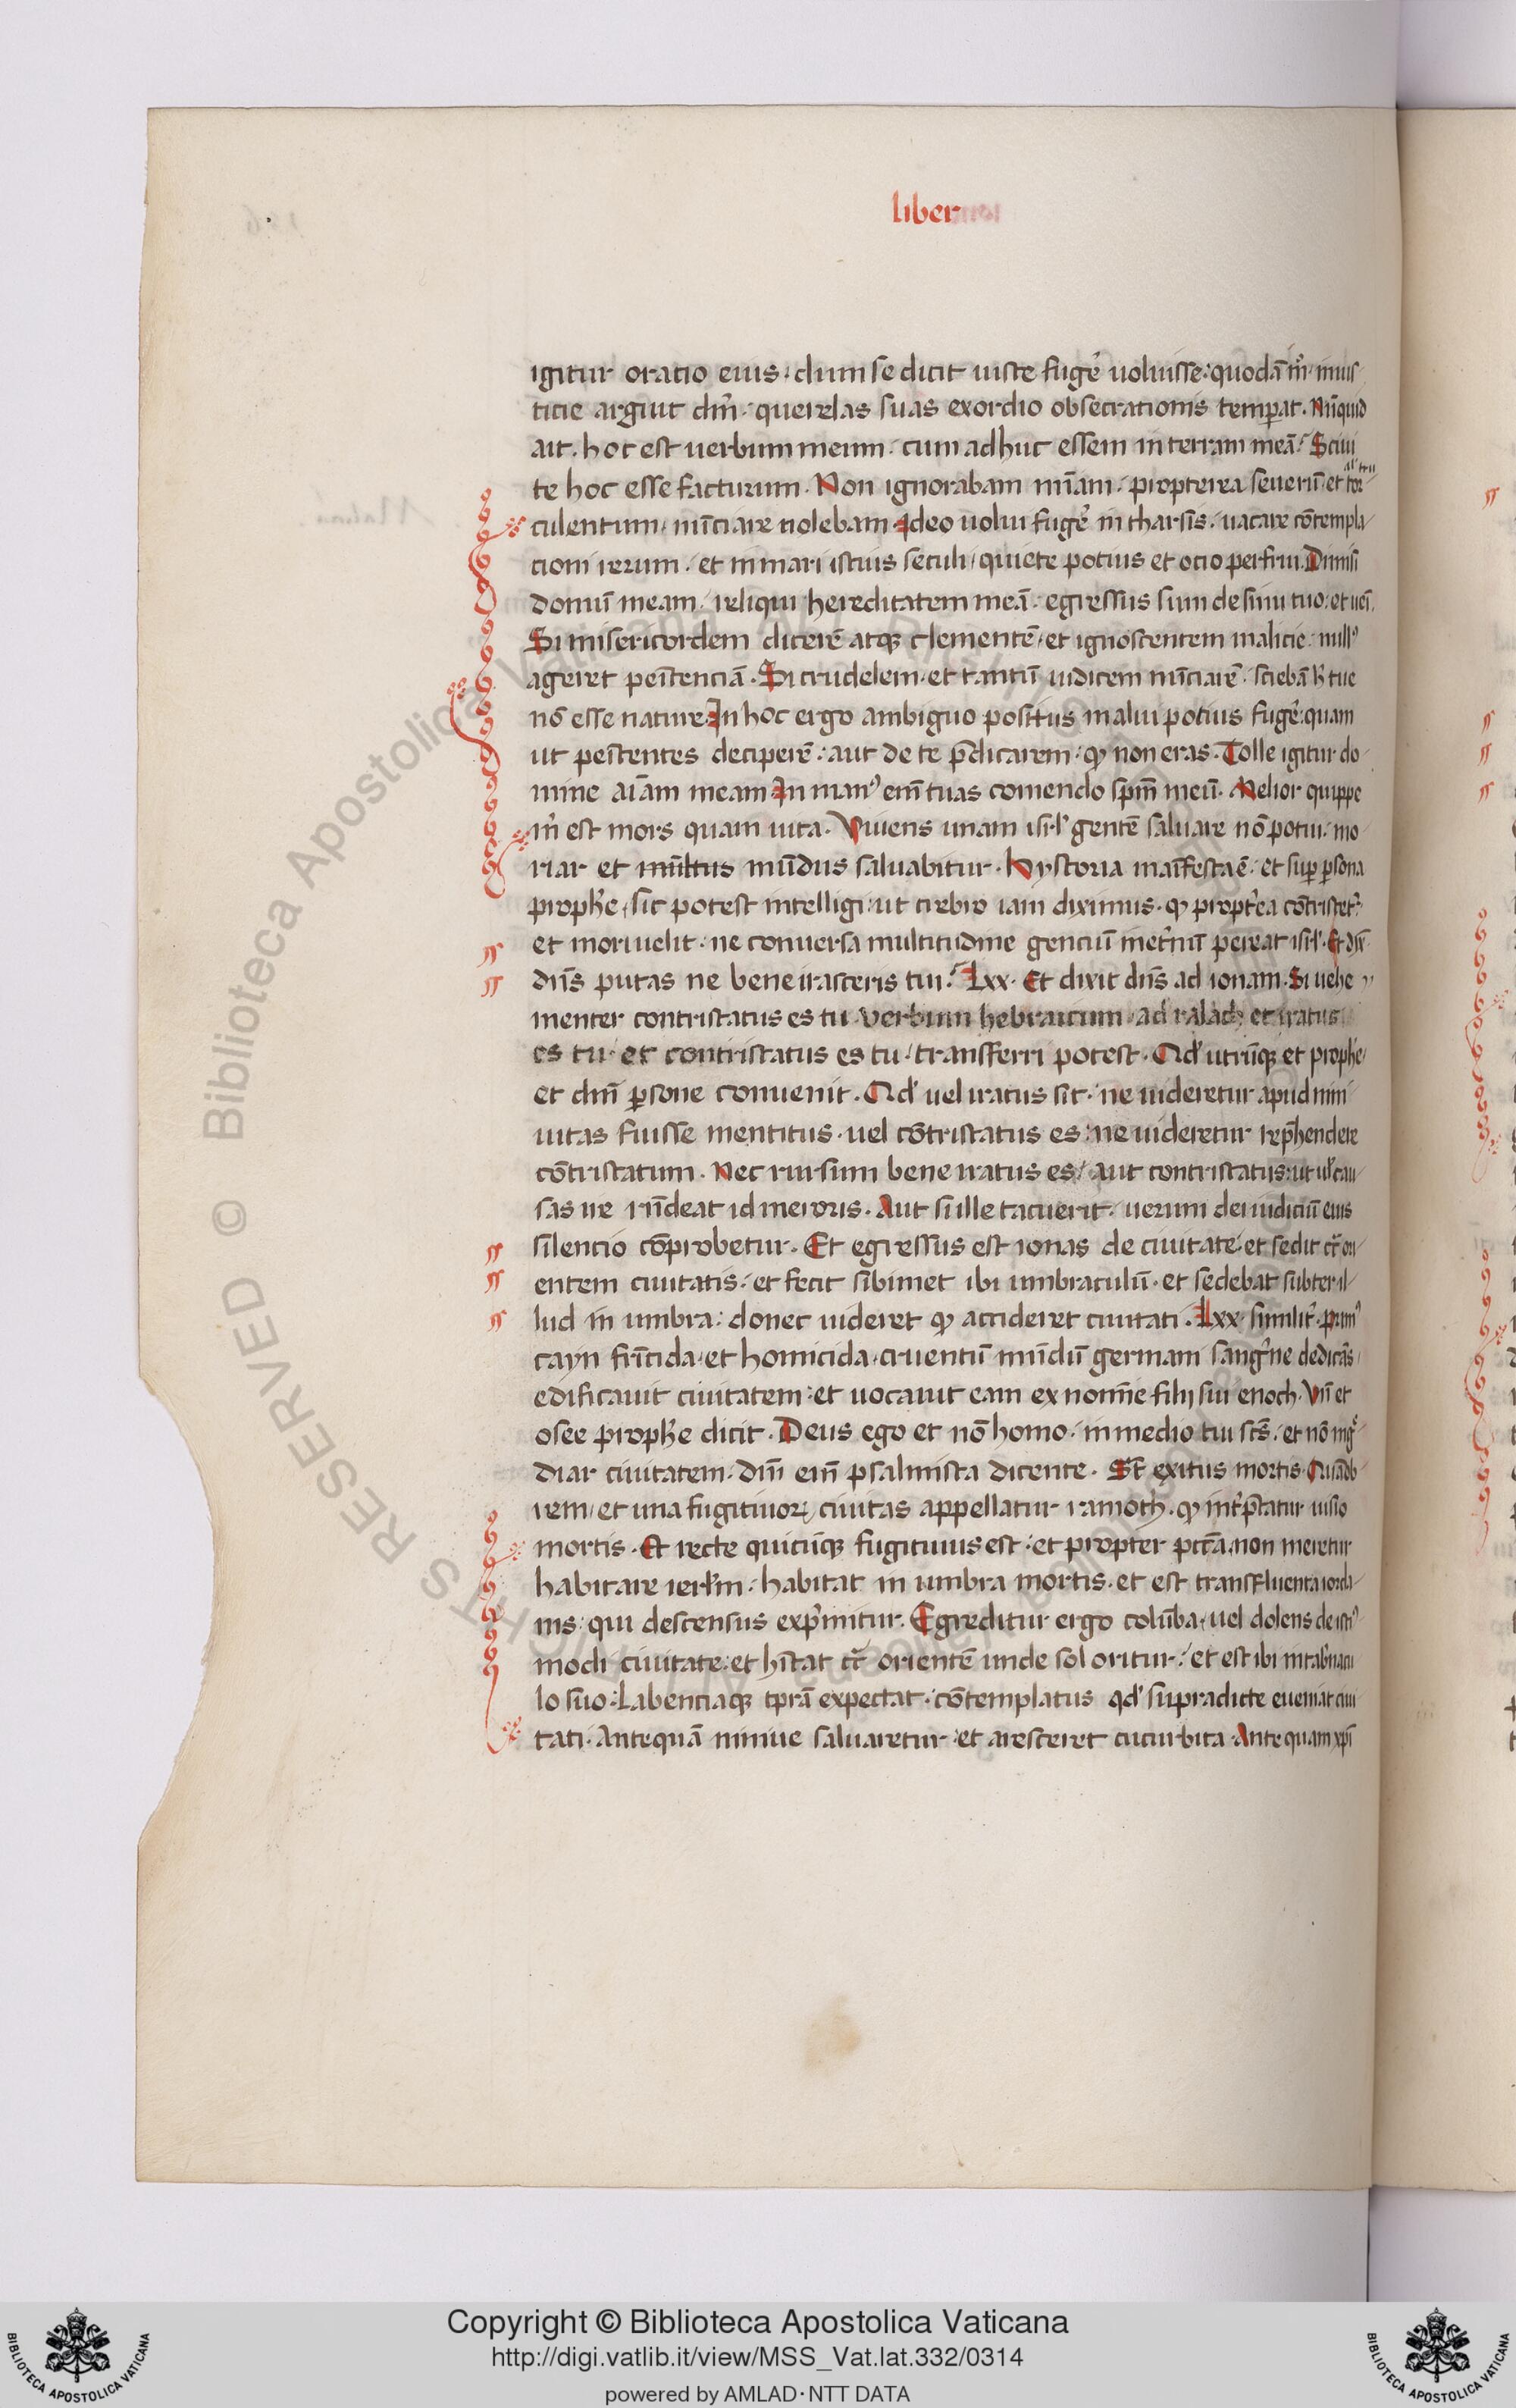 liber
igitur oratio eius · dum se dicit iuste fugẽ uoluisse : quodã m̃ · inius
ticie arguit dm̃ · querelas suas exordio obsecrationis temperat · Nũquid
ait · hoc est uerbum meum · cum adhuc essem in terram meã? Sciui
al' tru
te hoc esse facturum · Non ignorabam nũam · propterea seueriũ et tor
culentum / nũciare nolebam · Ideo uolui fugẽ in tharsis · uacare cõtempla
cioni rerum · et in mari istius seculi / quiete potius et ocio perfrui · Dimisi
domũ meam · reliqui hereditatem meã · egressus sum de sinu tuo : et uẽi
Si misericordem dicerẽ atq; clementẽ · et ignoscentem malicie · null'
ageret peĩtenciã · Si crudelem · et tantũ iudicem nũciarẽ · sciebã h' tue
nõ esse nature · In hoc ergo ambiguo positus malui potius fugẽ : quam
ut peĩtentes deciperẽ : aut de te p̃dicarem · q̃ non eras · Tolle igitur do
mine aĩam meam In man' em̃ tuas comendo spm̃ meũ · Melior quippe
m̃ est mors quam uita · Viuens unam isrl' gentẽ saluare nõ potui · mo
riar et multus mũdus saluabitur · Hystoria maĩfesta ẽ · et sup p̱sona
prophe · sic potest intelligi : ut crebro iam diximus · q̃ propt̃ea cõtristet̃
et mori uelit · ne conuersa multitudine genciũ inet̃nũ pereat isrl' · Et dix̃
dñs putas ne bene irasceris tu? Lxx · Et dixit dñs ad ionam · Si uehe
menter contristatus es tu · Verbum hebraicum · ad ralach et iratus
es tu · et contristatus es tu / transferri potest · Qd' utrũq; et prophe
et dm̃ p̱sone conuenit · Qd' uel iratus sit · ne uideretur apud nini
uitas fuisse mentitus · uel cõtristatus es : ne uideretur rep̃hendere
cõtristatum · Nec rursum bene iratus es / aut contristatus : ut ul' cau
sas ire rñdeat id meroris · Aut si ille tacuerit · uerum dei iudiciũ eius
silencio cõprobetur · Et egressus est ionas de ciuitate · et sedit cr̃ ori
entem ciuitatis · et fecit sibimet ibi umbraculũ · et sedebat subter il
lud in umbra : donec uideret q̃ accideret ciuitati · Lxx · similit̃ · prim'
cayn fr̃icida · et homicida · cruentũ mũdũ germani sang'ne dedicãs
edificauit ciuitatem : et uocauit eam ex nomĩe filij sui enoch · Vñ et
osee prophe dicit · Deus ego et nõ homo · in medio tui scs̃ · et nõ ing̃
diar ciuitatem · Dm̃ em̃ psalmista dicente · St̃ exitus mortis · Quãob
rem · et una fugitiuoꝝ ciuitas appellatur ramoth · q̃ int̃p̃tatur uisio
mortis · Et recte quicũq; fugitiuus est · et propter pcc̃a · non meretur
habitare ierl'm · habitat in umbra mortis · et est transfluenta iorda
nis · qui descensus exp̃mitur · Egreditur ergo colũba · uel dolens de isti'
modi ciuitate · et hĩtat cr̃ orientẽ unde sol oritur · et est ibi in tab'nacu
lo suo · Labenciaq; tp̃rã expectat · cõtemplatus qd' supradicte eueniat ciui
tati · Antequã niniue saluaretur · et aresceret cucurbita · Ante quam xp̃i
Copyright © Biblioteca Apostolica Vaticana
http://digi.vatlib.it/view/MSS_Vat.lat.332/0314
powered by AMLAD·NTT DATA